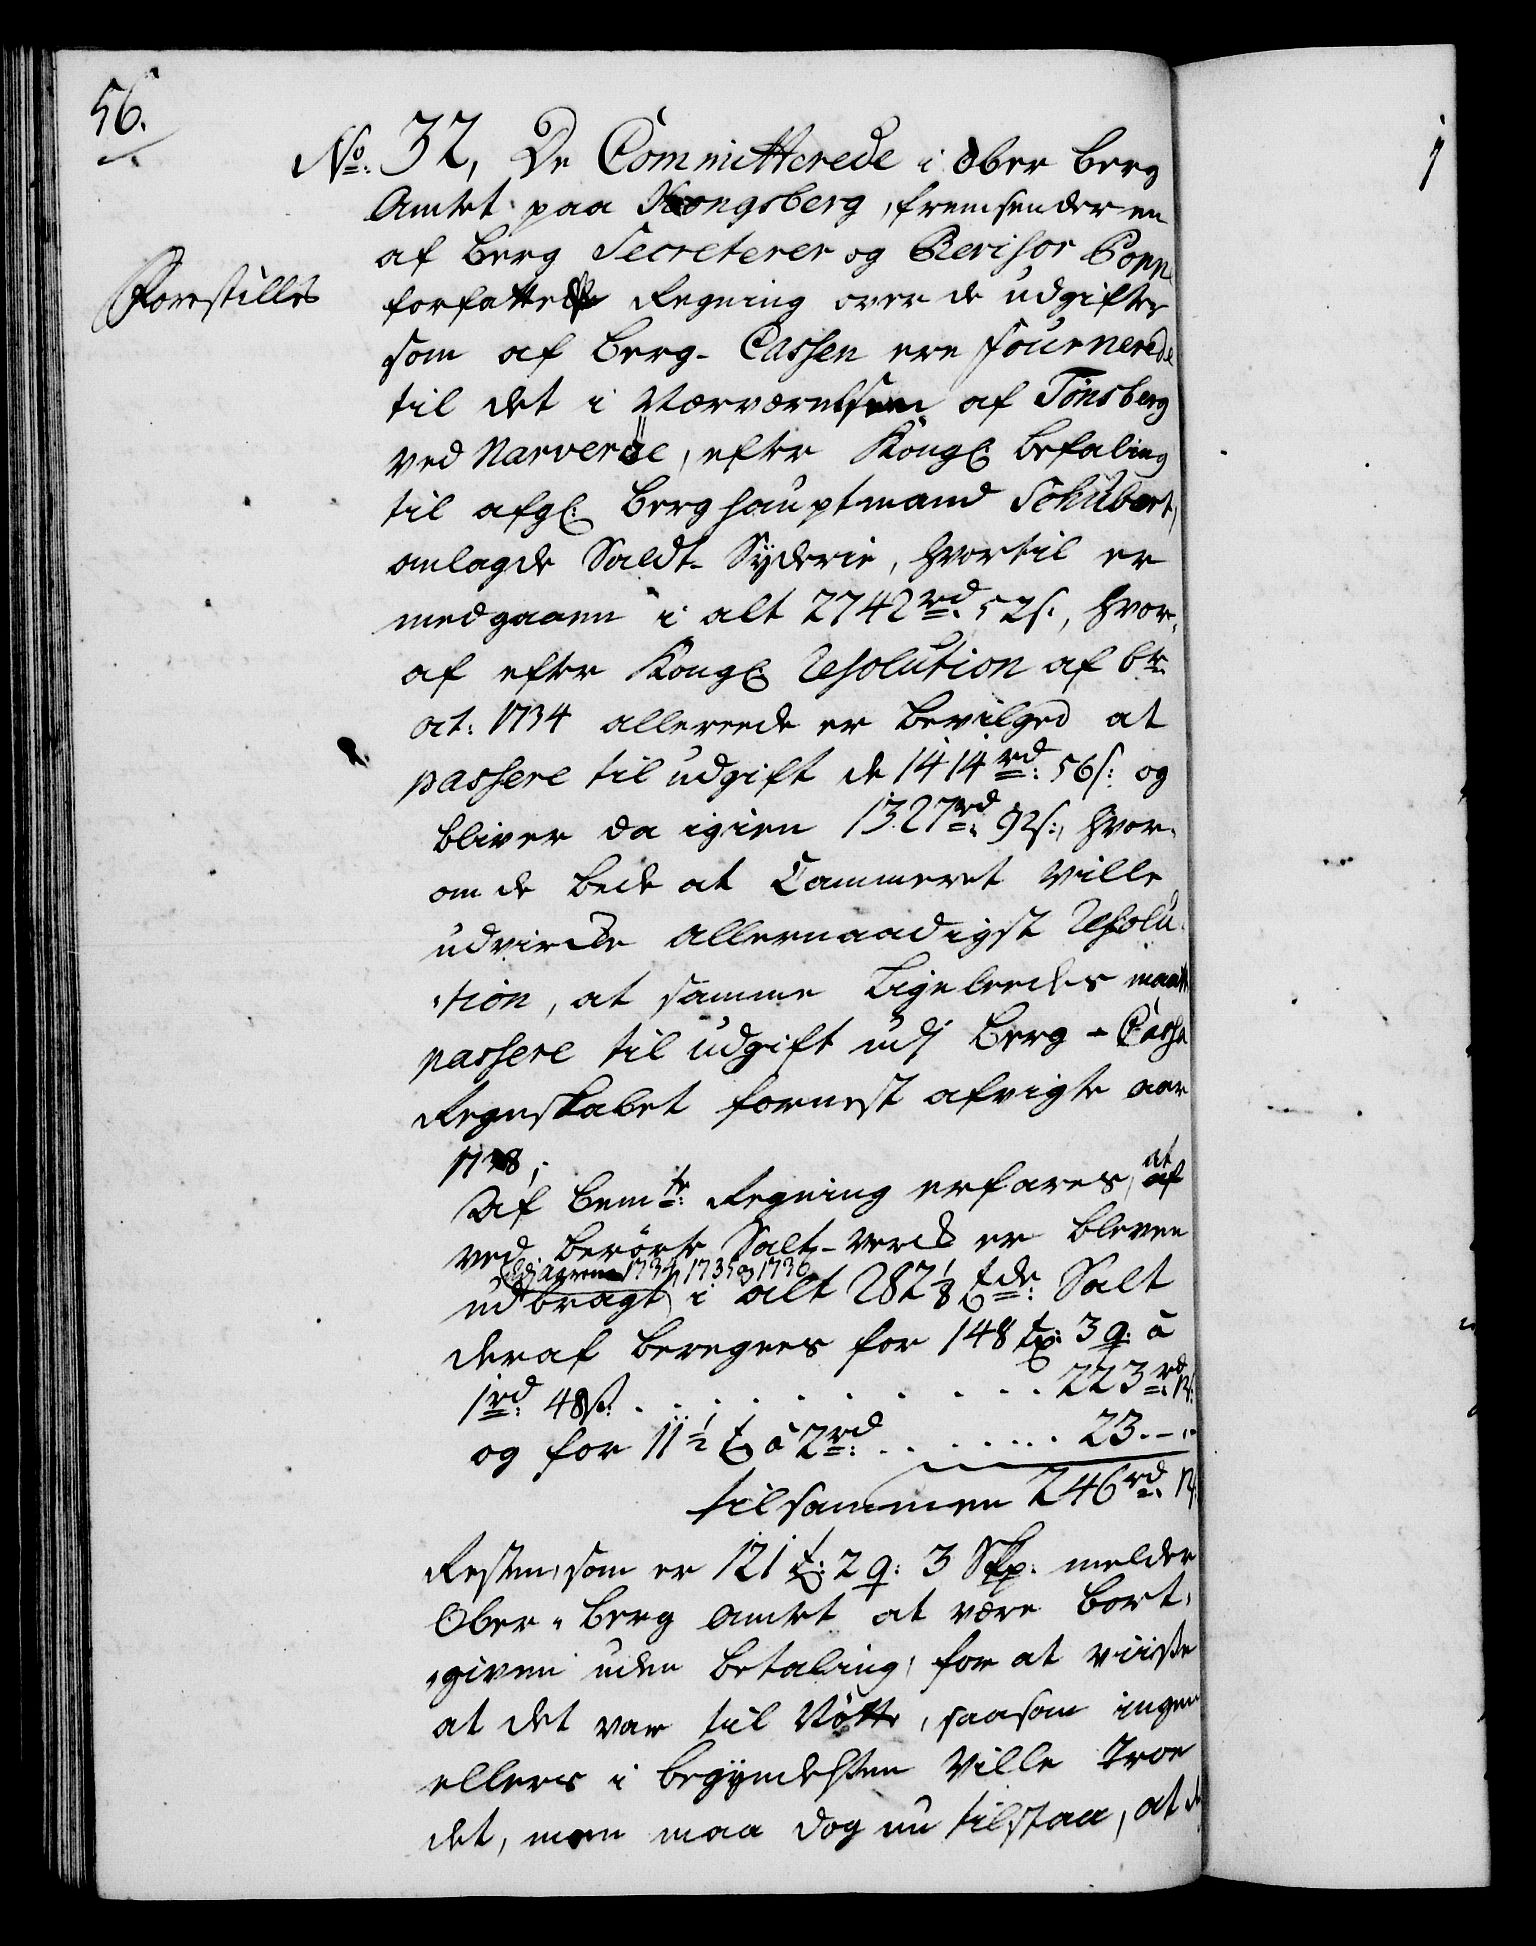 56.
No: 32, De Committerede i Ober Berg
Amtet paa Kongsberg, fremsender en
af Berg Secreterer og Revisor Popp
Forestilles
forfattede Regning over de udgifter
som af Berg-Cassen ere fournerede
til det i Nærværelsen af Tønsberg
ved Narveröe, efter Kongl: Befaling
til afgl: Berghauptmand Schubert,
anlagde Saldt-Syderie, hvortil er
medgaaen i alt 2742 rd: 52 s:, hvor-
af efter Kongl: Resolution af 6te
at: 1734 allereede er bevilged at
passere til udgift de 1414 rd: 56 s: og
bliver da igien 1327 rd: 92 s:, hvor-
om de bede at Cammeret ville
udvircke allernaadigst Resolu-
tion, at samme ligeleedes maatte
passere til udgift udj Berg-Cassa
Regnskabet for nest afvigte aar
1738;
Af bemte: Regning erfares, at
ved berørte Salt-Verck er bleven
udj Aarene 1734, 1735 og 1736
udbragt i alt 282 1/8 tde: Salt
deraf beregnes for 148 tr: 3 q: à
1 rd: 48 s: . . . . . . . . . . . 223 rd: 12
og for 11 1/2 t à 2 rd: . . . . . . . 23. - "
tilsammen 246 rd: 12
Resten, som er 121 t: 2 q: 3 Skp: melder
Ober-Berg Amtet at være bort-
given uden betaling, for at viise
at det var til Nøtte, saasom ingen
ellers i begyndelsen ville troe
det, men maa dog nu tilstaa, at d